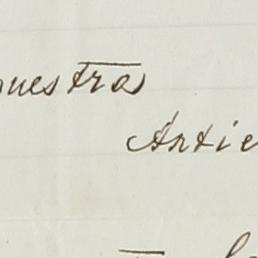 nuestra
Antie